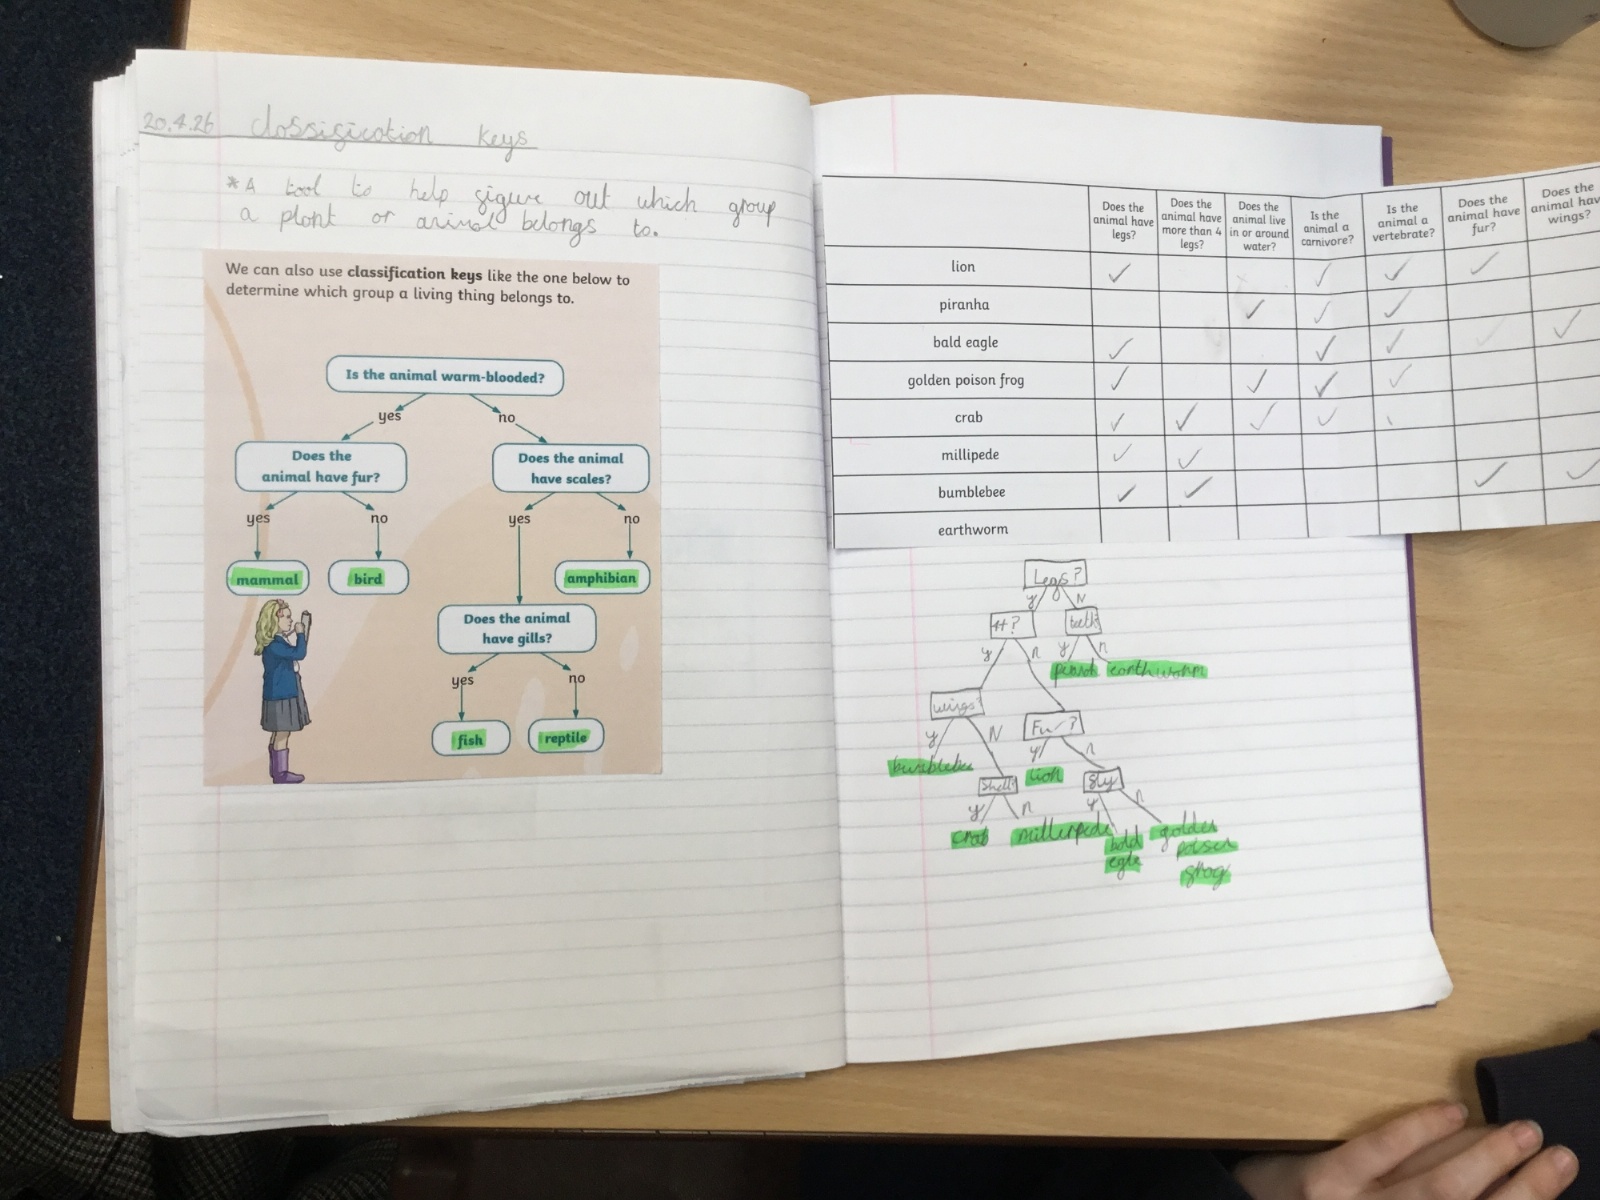 20.4.26 Classification Keys
*A tool to help figure out which group
a plant or animal belongs to.
We can also use classification keys like the one below to
determine which group a living thing belongs to.
Is the animal warm-blooded?
yes
no
Does the
animal have fur?
Does the animal
have scales?
yes
no
yes
no
mammal
bird
amphibian
Does the animal
have gills?
yes
no
fish
reptile
Does the
animal have
legs?
Does the
animal have
more than 4
legs?
Does the
animal live
in or around
water?
Is the
animal a
carnivore?
Is the
animal a
vertebrate?
Does the
animal have
fur?
Does the
animal hav
wings?
lion
piranha
bald eagle
golden poison frog
crab
millipede
bumblebee
earthworm
Legs?
y
N
y
n
y
n
earthworm
wings?
Fur?
y
N
y
n
bumblebee
lion
Shell?
fly
y
n
y
n
crab
millerpede
bald
egle
golden
poison
frog